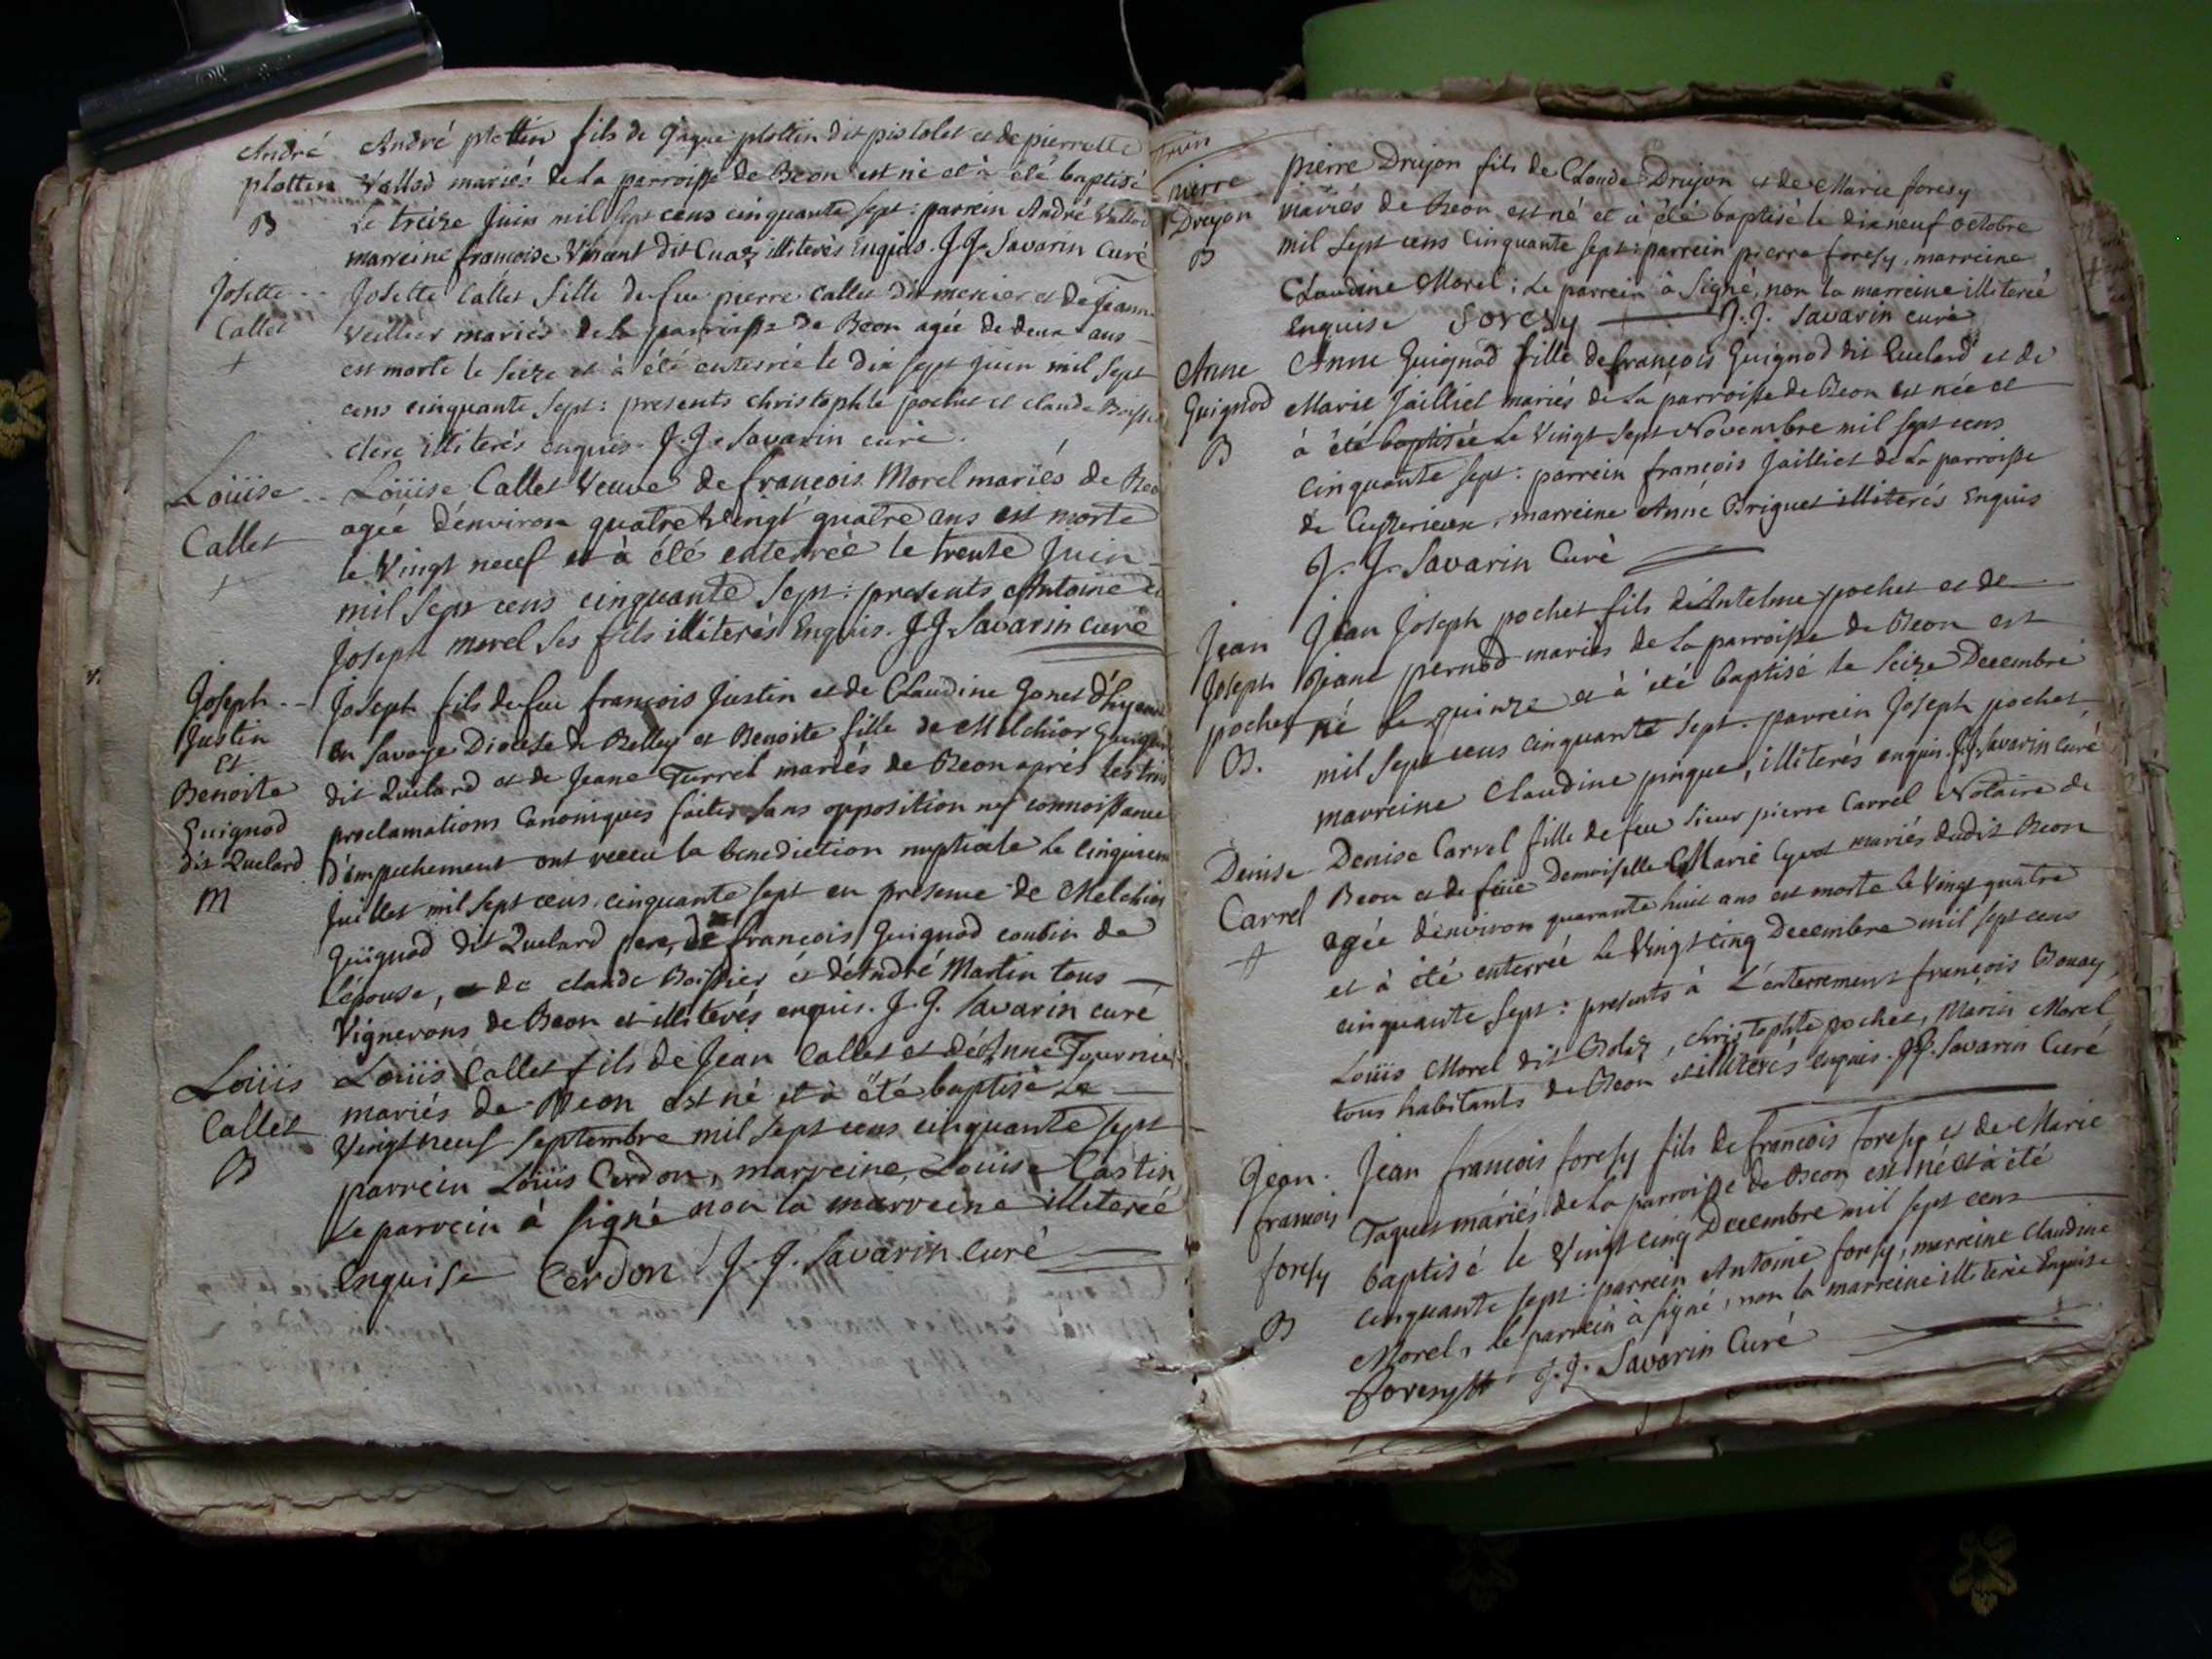 André
plottin
B
André plottin fils de Jaque plottin dit pistolet et de pierrette
Vallod mariés de la parroisse de Beon est né et à été baptisé
Le treize Juin mil sept cens cinquante sept: parrein André Vallod
marreine francoise Vincent dit Cuaz illiterés Enquis. J. J. Savarin Curé
Josette
Callet
+
Josette Callet fille de feu pierre Callet dit mercier et de Jeanne
Veillier mariés de la parroisse de Beon agée de deux ans
est morte le seize et à été enterrée le dix sept juin mil sept
cens cinquante sept: presents christophle pochet et claude
clerc illiterés enquis. J. J. Savarin curé.
Loüise
Callet
+
Loüise Callet Veuve de francois Morel mariés de Beon
agée d'environ quatre Vingt quatre ans est morte
le Vingt neuf et à été enterrée le trente Juin
mil sept cens cinquante sept: presents Antoine et
Joseph morel ses fils illiterés Enquis. J. J. Savarin curé
Joseph
Justin
Et
Benoite
Guignod
dit Quelard
M
Joseph fils de feu francois Justin et de Claudine Gonet
en Savoye Diocese de Belley et Benoite fille de Melchior Guignod
dit Quelard et de Jeane Turrel mariés de Beon aprés les trois
proclamations Canoniques faites sans opposition ny connoissance
d'empechement ont receu la benediction nuptiale le cinquieme
Juillet mil sept cens cinquante sept en presence de Melchior
Guignod dit Quelard pere, de francois Guignod cousin de
L'épouse, de claude Boissier et d'André Martin tous
Vignerons de Beon et illiterés enquis. J. J. Savarin curé
Loüis
Callet
B
Loüis Callet fils de Jean Callet et de Anne Tournier
mariés de Beon est né et à été baptisé Le
Vingt neuf Septembre mil sept cens cinquante sept
parrein Loüis Cerdon, marreine Louise Castin
Le parrein à signé non la marreine illiterée
Enquise Cerdon J. J. Savarin Curé
pierre
Drujon
B
pierre Drujon fils de Claude Drujon et de Marie foresy
mariés de Beon est né et à été baptisé le dix neuf octobre
mil sept cens cinquante sept: parrein pierre foresy, marreine
Claudine Morel; Le parrein à signé, non la marreine illiterée
Enquise Foresy J. J. Savarin curé
Anne
Guignod
B
Anne Guignod fille de françois Guignod dit Quelard et de
Marie Jailliet mariés de la parroisse de Beon est née et
à été baptisée Le Vingt sept Novembre mil sept cens
cinquante sept: parrein françois Jailliet de La parroisse
de Cuzerieux, marreine Anne Briguet illiterés Enquis
J. J. Savarin Curé
Jean
Joseph
pochet
B.
Jean Joseph pochet fils d'Antelme pochet et de
Jeane pernod mariés de La parroisse de Beon est
né Le quinze et à été baptisé le seize Decembre
mil sept cens cinquante sept: parrein Joseph pochet,
marreine Claudine pinque, illiterés enquis. J. J. Savarin curé
Denise
Carrel
+
Denise Carrel fille de feu sieur pierre Carrel Notaire de
Beon et de feüe Demoiselle Marie Cyvot mariés dudit Beon
agée d'environ quarante huit ans est morte Le Vingt quatre
et à été enterrée Le Vingt cinq Decembre mil sept cens
cinquante sept: presents à L'enterrement françois Bouay,
Loüis Morel dit Bolaz, christophle pochet, Marin Morel
tous habitants de Beon et illiterés enquis. J. J. Savarin Curé
Jean
francois
foresy
B
Jean francois foresy fils de francois foresy et de Marie
Taquet mariés de La parroisse de Beon est né et à été
baptisé le Vingt cinq Decembre mil sept cens
cinquante sept: parrein Antoine foresy, marreine Claudine
Morel, le parrein à signé, non la marreine illiterée Enquise
foresy J. J. Savarin Curé